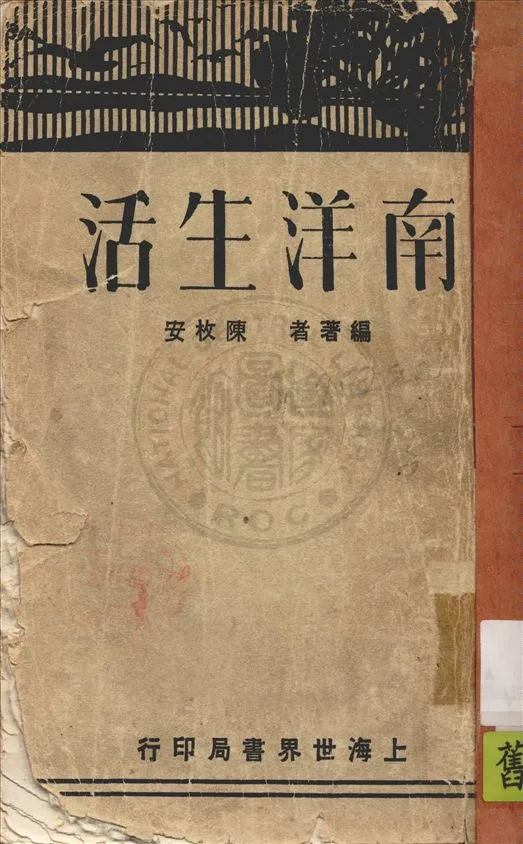 南洋生活
編著者 陳枚安
上海世界書局印行
舊
NATIONAL
R.O.C.